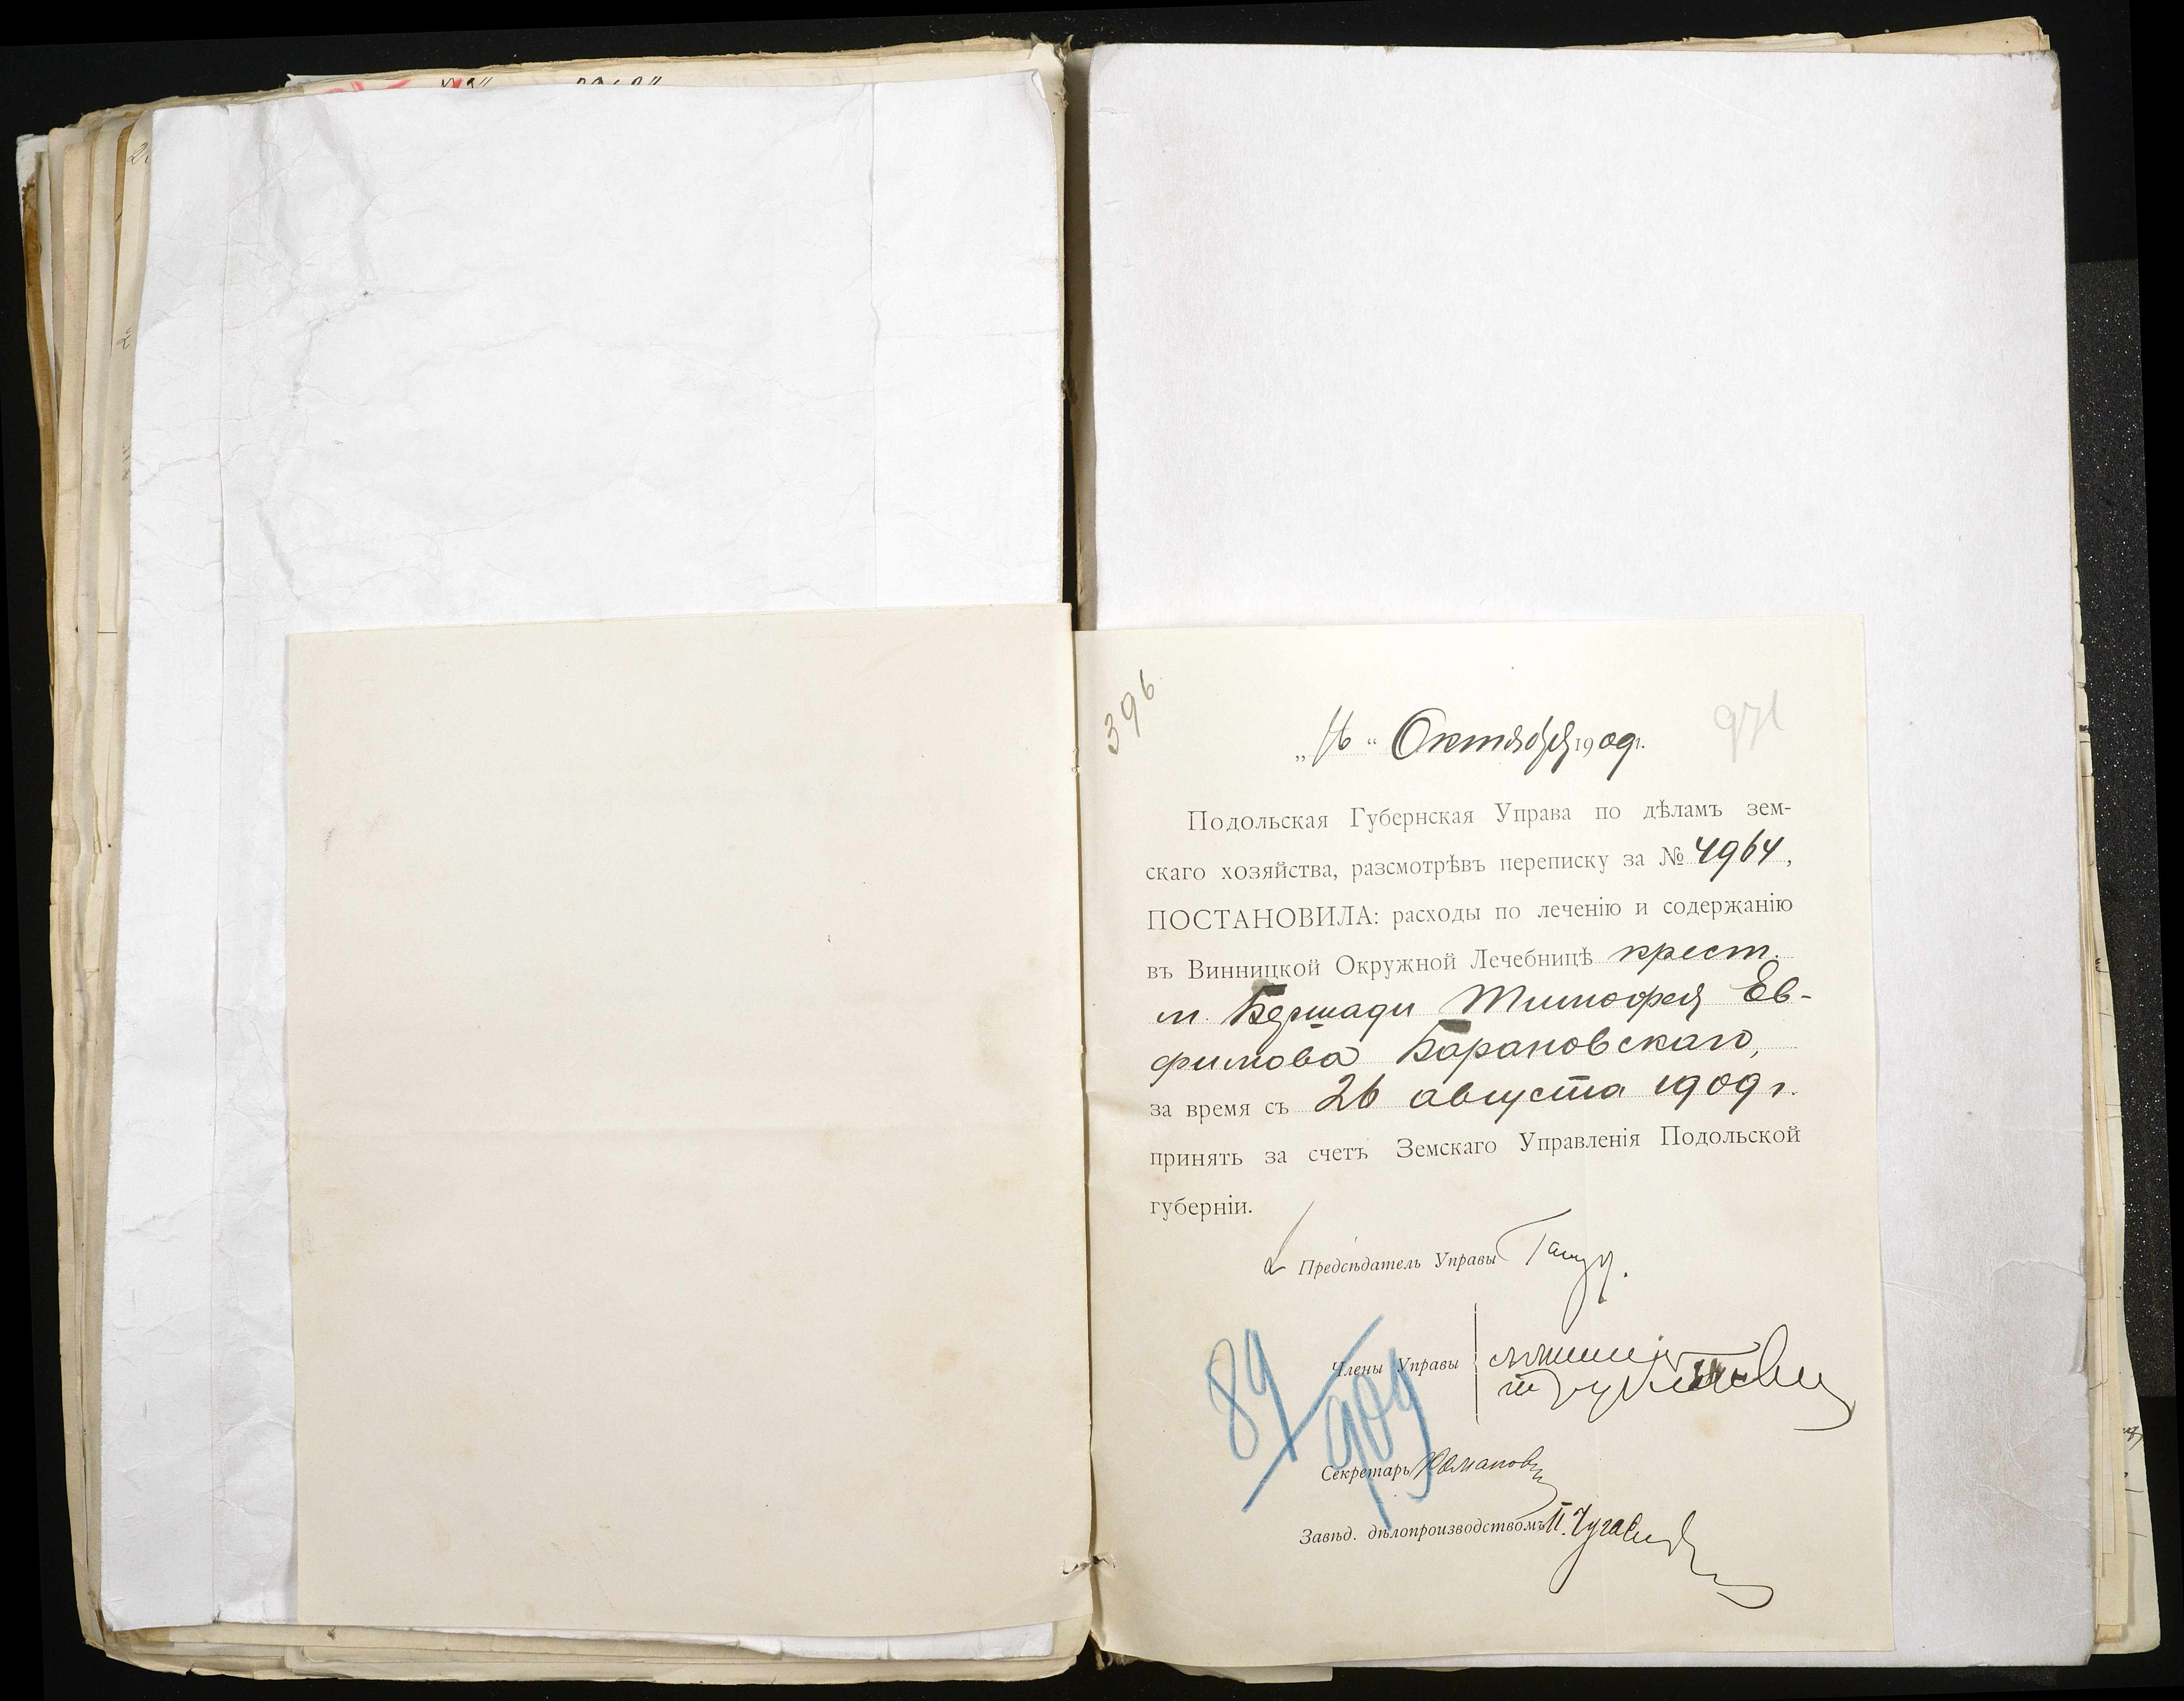 396
971
„16“ Октября 1909г.
Подольская Губернская Управа по дѣламъ зем-
скаго хозяйства, разсмотрѣвъ переписку за № 4964,
ПОСТАНОВИЛА: расходы по леченію и содержанію
въ Винницкой Окружной Лечебницѣ крест.
м. Бершади Тимофея Ев-
фимова Барановскаго,
за время съ 26 августа 1909 г.
принять за счетъ Земскаго Управленія Подольской
губерніи.
Предсѣдатель Управы
Члены Управы
89/909
Секретарь
Завѣд. дѣлопроизводствомъ